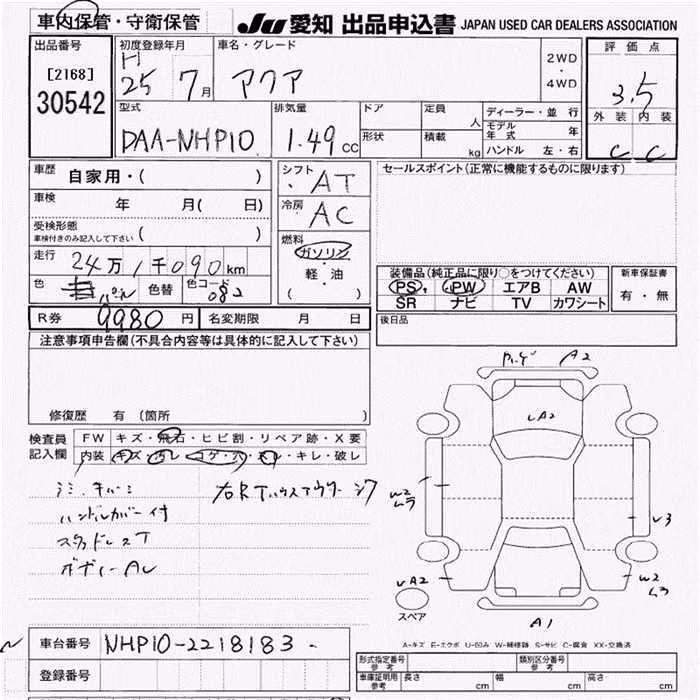 車内保管・守衛保管
JU 愛知 出品申込書 JAPAN USED CAR DEALERS ASSOCIATION
出品番号
[2168]
30542
初度登録年月
H
25 7月
車名・グレード
アクア
2WD
・
4WD
評価点
3.5
外装 内装
C C
型式
DAA-NHP10
排気量
1.49 cc
ドア
形状
定員 人
積載 kg
ディーラー・並行
モデル年式 年
ハンドル 左・右
車歴 自家用・( )
車検 年 月( 日)
受検形態
車検付きのみ記入して下さい ( )
走行 24万1千090km
色 パール 色替 色コード 082
シフト AT
冷房 AC
燃料
ガソリン
軽・油
( )
セールスポイント(正常に機能するものに限ります)
装備品(純正品に限り○をつけてください)
PS PW エアB AW
SR ナビ TV カワシート
新車保証書
有・無
後日品
R券 9980円 名変期限 月 日
注意事項申告欄(不具合内容等は具体的に記入して下さい)
修復歴 有(箇所
検査員記入欄
FW キズ・飛石・ヒビ割・リペア跡・X要
内装 キズ・汚レ・コゲ・穴・スレ・キレ・破レ
シミ
ハンドルカバー付
スタッドレスT
A2
A2
W2
V3
A2
W2
A1
スペア
A-キズ E-エクボ U-凹み W-補修跡 S-サビ C-腐食 XX-交換済
車台番号 NHP10-2218183
登録番号
形式指定番号 参考
類別区分番号 参考
車庫証明用 参考 長さ cm 幅 cm 高さ cm